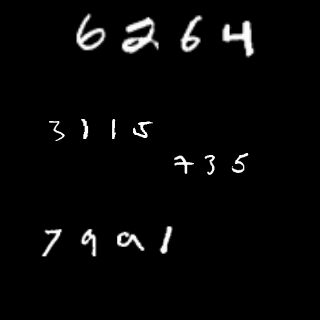 6264
3115
735
7991